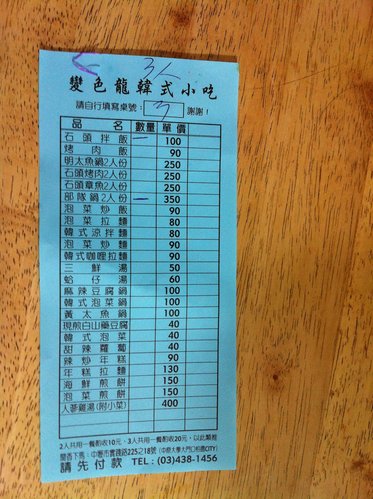 3人
變色龍韓式小吃
請自行填寫桌號： 3 謝謝！
品名 數量 單價
石頭拌飯 一 100
烤肉飯 90
明太魚鍋2人份 250
石頭烤肉2人份 250
石頭章魚2人份 250
部隊鍋2人份 一 350
泡菜炒飯 90
泡菜拉麵 80
韓式涼拌麵 80
泡菜炒麵 90
韓式咖哩拉麵 90
三鮮湯 50
蛤仔湯 60
麻辣豆腐鍋 100
韓式泡菜鍋 100
黃太魚鍋 100
現煎白山藥豆腐 40
韓式泡菜 40
甜辣蘿蔔 40
辣炒年糕 90
年糕拉麵 130
海鮮煎餅 150
泡菜煎餅 150
人蔘雞湯(附小菜) 400
2人共用一餐酌收10元，3人共用酌收20元，以此類推
店西下馬：中壢市實踐路225之18號 (中原大學大門口相面CITY)
請先付款 TEL: (03)438-1456